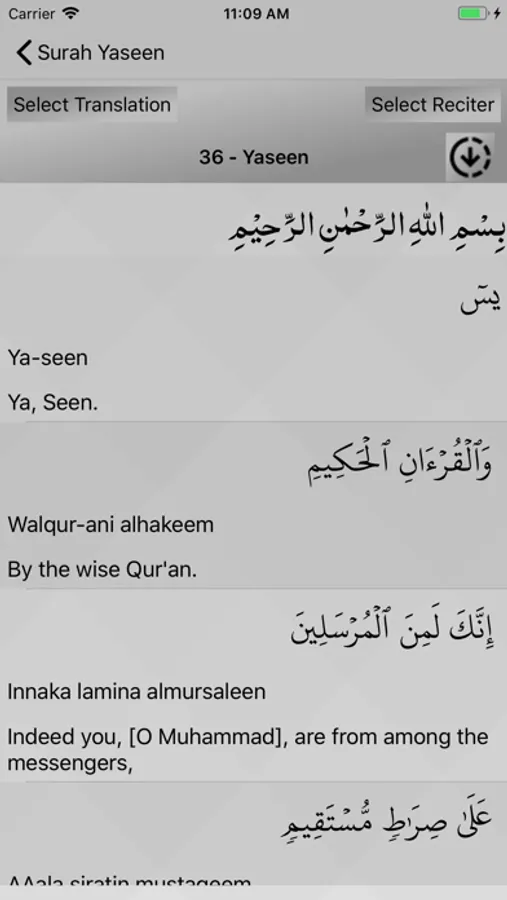 Carrier 11:09 AM
Surah Yaseen
Select Translation Select Reciter
36 - Yaseen
بِسْمِ اللّٰهِ الرَّحْمٰنِ الرَّحِيْمِ
يسٓ
Ya-seen
Ya, Seen.
وَٱلْقُرْءَانِ ٱلْحَكِيمِ
Walqur-ani alhakeem
By the wise Qur'an.
إِنَّكَ لَمِنَ ٱلْمُرْسَلِينَ
Innaka lamina almursaleen
Indeed you, [O Muhammad], are from among the
messengers,
عَلَىٰ صِرَٰطٍ مُّسْتَقِيمٍ
AAala siratin mustaqeem